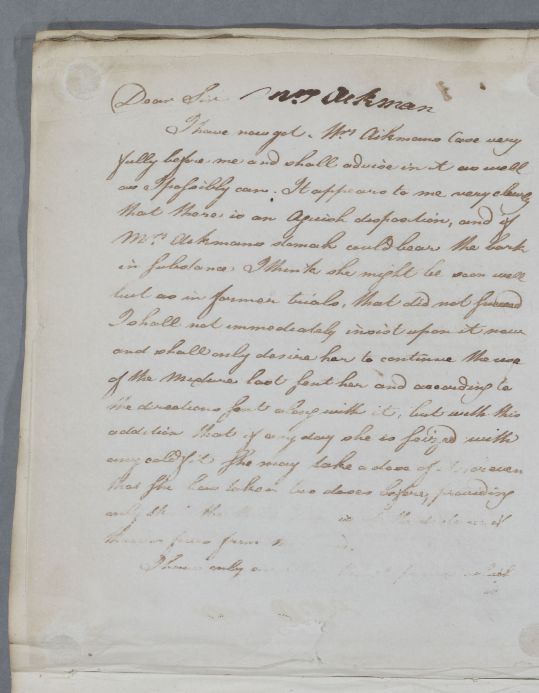 Dear Sir Mrs Aikman
I have now got Mrs Aikmans Case very
fully before me and shall advise in it as well
as I possibly can. It appears to me very clearly
that there is an Aguish disposition, and if
Mrs Aikmans stomach could bear the bark
in substance, I think she might be soon well
but as in former trials, that did not succeed
I shall not immediately insist upon it now
and shall only desire her to continue the use
of the Mixture last sent her and according to
the directions sent along with it, but with this
addition that if any day she is seized with
any cold fit She may take a dose of it even
tho' She has taken two doses before, providing
only the
from
I have only